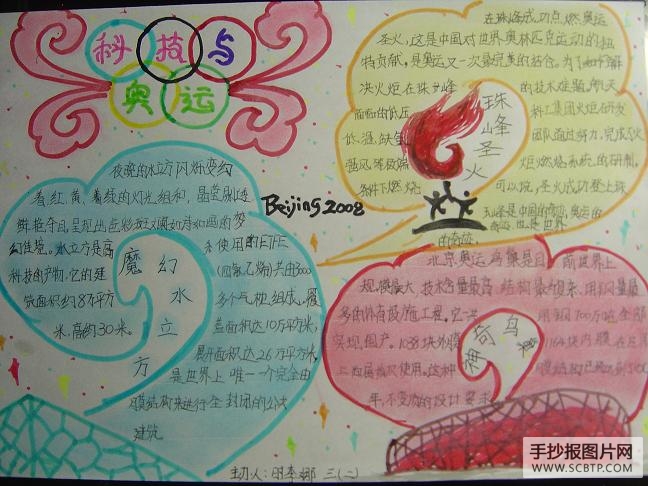 科技与
奥运
夜晚的水立方闪烁变幻
着红、黄、蓝绿的灯光组和,晶莹剔透
鲜艳夺目,呈现出色彩斑斓如诗如画的梦
幻佳境。水立方是高
科技的产物,它的建
筑面积约8万平方
米,高约30米。
使用的ETFE
(四氟乙烯)共由3000
多个气枕组成。覆
盖面积达10万平方米,
展开面积达26万平方米,
是世界上唯一一个完全由
膜结构来进行全封闭的公共
建筑
魔幻
水
立
方
Beijing 2008
在珠峰成功点燃奥运
圣火,这是中国对世界奥林匹克运动的独
特贡献,是奥运又一次最完美的结合。为了
决火炬在珠峰
的技术难题,航天
面临的低压
科工集团火炬研发
低温、缺氧
团队通过努力,完成了火
强风等极端
炬燃烧系统的研制,
条件下燃烧
圣火成功登上珠
是中国的奇迹,奥运的
奇迹,也是世界
的奇迹。
珠
峰
圣
火
北京奥运鸟巢是目前世界上
规模最大、技术含量最高、结构最
多的体育设施工程。它
用钢
全部
实现国产。1038块外膜
块内膜在
使用。这种
膜结构已达到
年不变质的设计要求
神奇鸟
主办人:
李娜 三(二)
手抄报图片网
WWW.SCBTP.COM